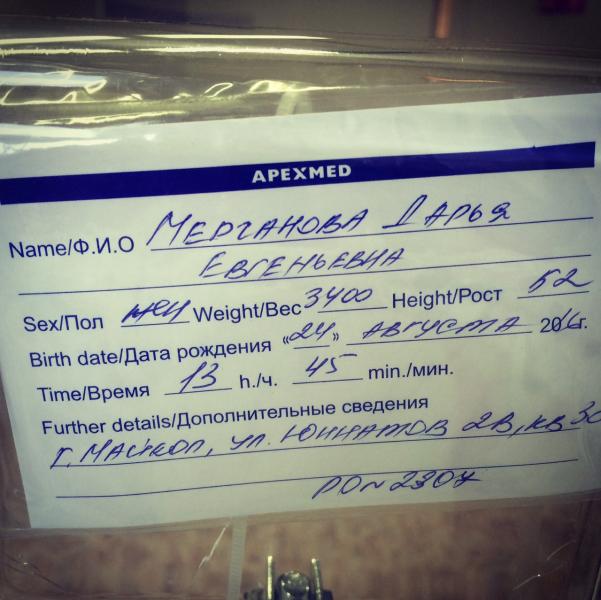 APEXMED
Name/Ф.И.О Мерганова Дарья
Евгеньевна
Sex/Пол жен Weight/Вес 3400 Height/Рост 52
Birth date/Дата рождения «24» Августа 2016г.
Time/Время 13 h./ч. 45 min./мин.
Further details/Дополнительные сведения
г. Майкоп, ул. Юннатов 2В, кв 30
РОN 2307